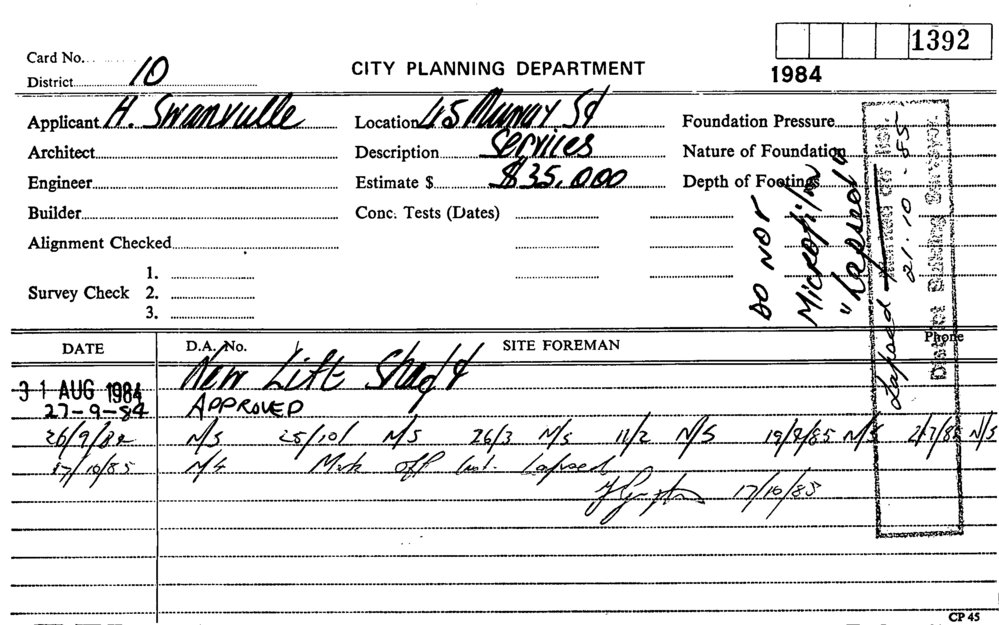 1392
1984
Card No.
District 10
CITY PLANNING DEPARTMENT
Applicant H. Swanville
Location 45 Murray St
Foundation Pressure
Architect
Description Services
Nature of Foundation
Engineer
Estimate $ $35,000
Depth of Footings
Builder
Conc. Tests (Dates)
Alignment Checked
Survey Check
1.
2.
3.
DO NOT
Microfilm
"Lapsed"
Lapsed
21.10-85
District Building Surveyor
DATE
D.A. No.
SITE FOREMAN
Phone
31 AUG 1984 New Lift Shaft
27-9-84 APPROVED
26/9/84 N/S 25/10/ N/S 26/3 N/S 11/2 N/S 19/4/85 N/S 2/7/85 N/S
17/10/85 N/S Mark off list. Lapsed
17/10/85
CP 45